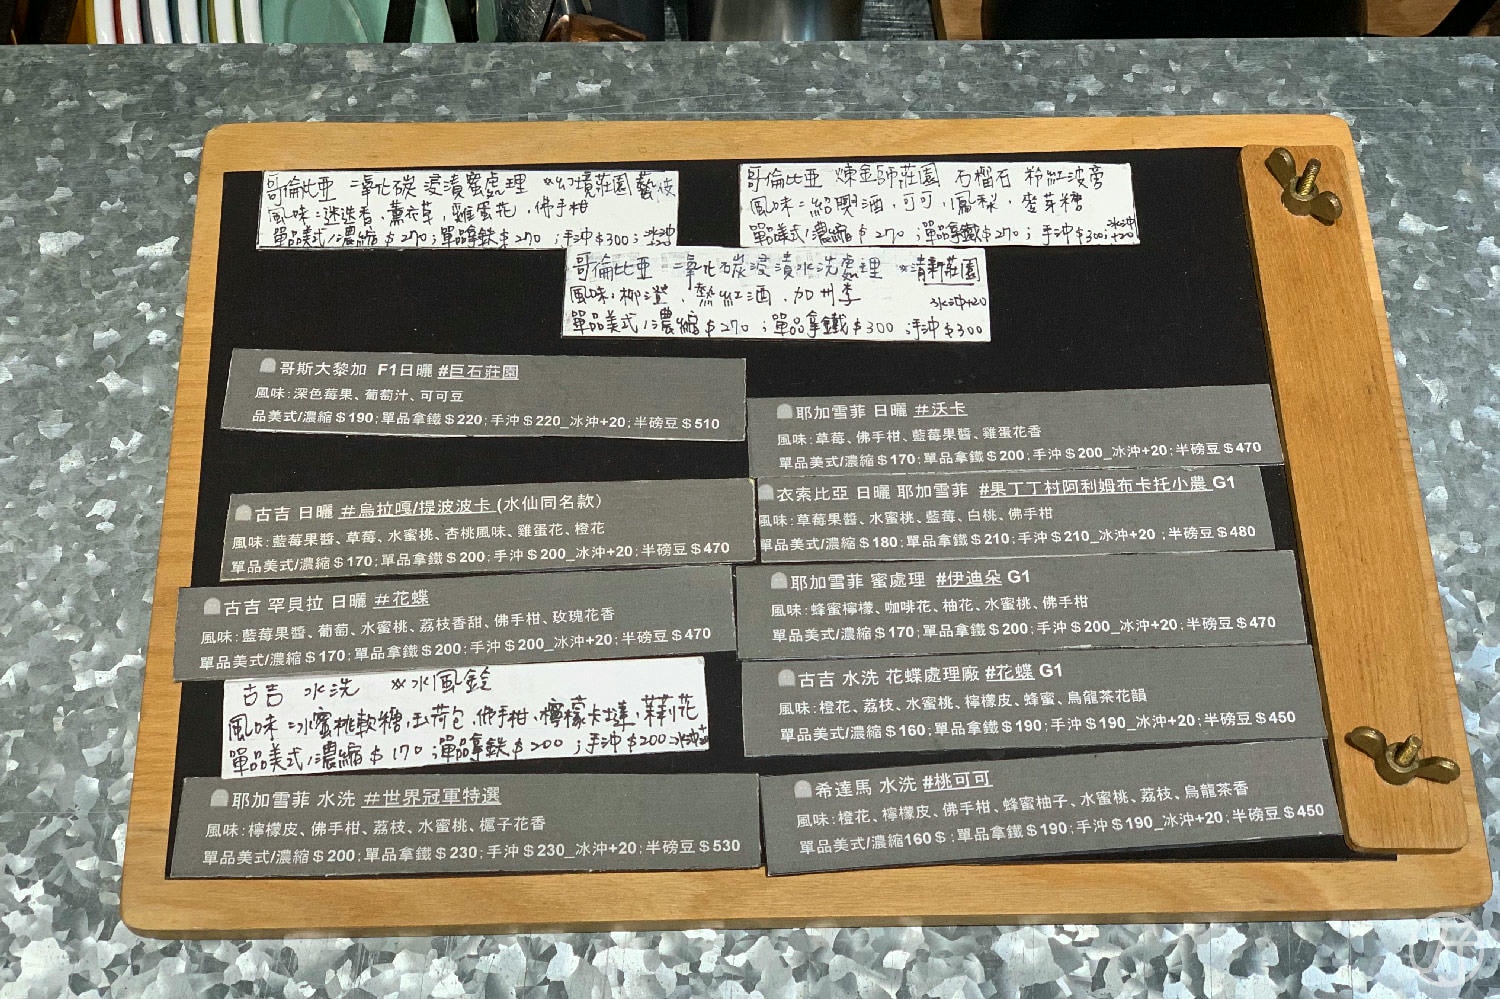 哥倫比亞 二氧化碳 浸漬蜜處理 ※幻境莊園 藝伎
風味:迷迭香,薰衣草,雞蛋花,佛手柑
單品美式/濃縮$270;單品拿鉄$270;手沖$300;冰沖
哥倫比亞 煉金師莊園 石榴石 粉紅波旁
風味:紹興酒,可可,鳳梨,麥芽糖
單品美式/濃縮$270;單品拿鐵$270;手沖$300;冰沖+20
哥倫比亞 二氧化碳浸漬水洗處理 ※清新莊園
風味:柳澄、熱紅酒,加州李 冰沖+20
單品美式/濃縮$270;單品拿鐵$300;手沖$300
哥斯大黎加 F1日曬 #巨石莊園
風味:深色莓果、葡萄汁、可可豆
品美式/濃縮$190;單品拿鐵$220;手沖$220_冰沖+20;半磅豆$510
耶加雪菲 日曬 #沃卡
風味:草莓、佛手柑、藍莓果醬、雞蛋花香
單品美式/濃縮$170;單品拿鐵$200;手沖$200_冰沖+20;半磅豆$470
古吉 日曬 #烏拉嘎/提波波卡 (水仙同名款)
風味:藍莓果醬、草莓、水蜜桃、杏桃風味、雞蛋花、橙花
單品美式/濃縮$170;單品拿鐵$200;手沖$200_冰沖+20;半磅豆$470
衣索比亞 日曬 耶加雪菲 #果丁丁村阿利姆布卡托小農 G1
風味:草莓果醬、水蜜桃、藍莓、白桃、佛手柑
單品美式/濃縮$180;單品拿鐵$210;手沖$210_冰沖+20;半磅豆$480
古吉 罕貝拉 日曬 #花蝶
風味:藍莓果醬、葡萄、水蜜桃、荔枝香甜、佛手柑、玫瑰花香
單品美式/濃縮$170;單品拿鐵$200;手沖$200_冰沖+20;半磅豆$470
耶加雪菲 蜜處理 #伊迪朵 G1
風味:蜂蜜檸檬、咖啡花、柚花、水蜜桃、佛手柑
單品美式/濃縮$170;單品拿鐵$200;手沖$200_冰沖+20;半磅豆$470
古吉 水洗 ※水風鈴
風味:水蜜桃軟糖,玉荷包,佛手柑、檸檬卡撻,茉莉花
單品美式/濃縮$170;單品拿鉄$200;手沖$200
古吉 水洗 花蝶處理廠 #花蝶 G1
風味:橙花、荔枝、水蜜桃、檸檬皮、蜂蜜、烏龍茶花韻
單品美式/濃縮$160;單品拿鐵$190;手沖$190_冰沖+20;半磅豆$450
耶加雪菲 水洗 #世界冠軍特選
風味:檸檬皮、佛手柑、荔枝、水蜜桃、梔子花香
單品美式/濃縮$200;單品拿鐵$230;手沖$230_冰沖+20;半磅豆$530
希達馬 水洗 #桃可可
風味:橙花、檸檬皮、佛手柑、蜂蜜柚子、水蜜桃、荔枝、烏龍茶香
單品美式/濃縮160$;單品拿鐵$190;手沖$190_冰沖+20;半磅豆$450